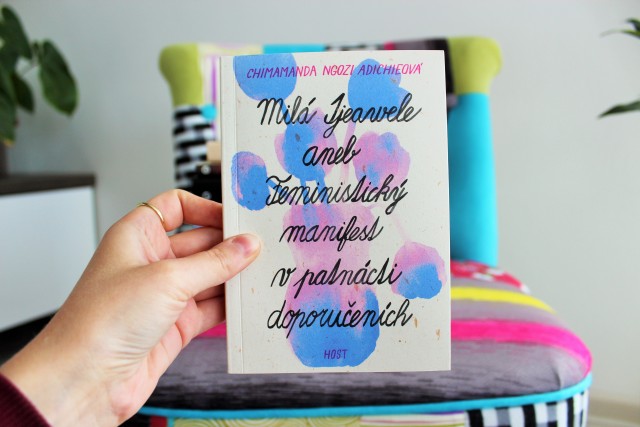 CHIMAMANDA NGOZI ADICHIEOVÁ
Milá Ijeawele
aneb
Feministický
manifest
v patnácti
doporučeních
HOST